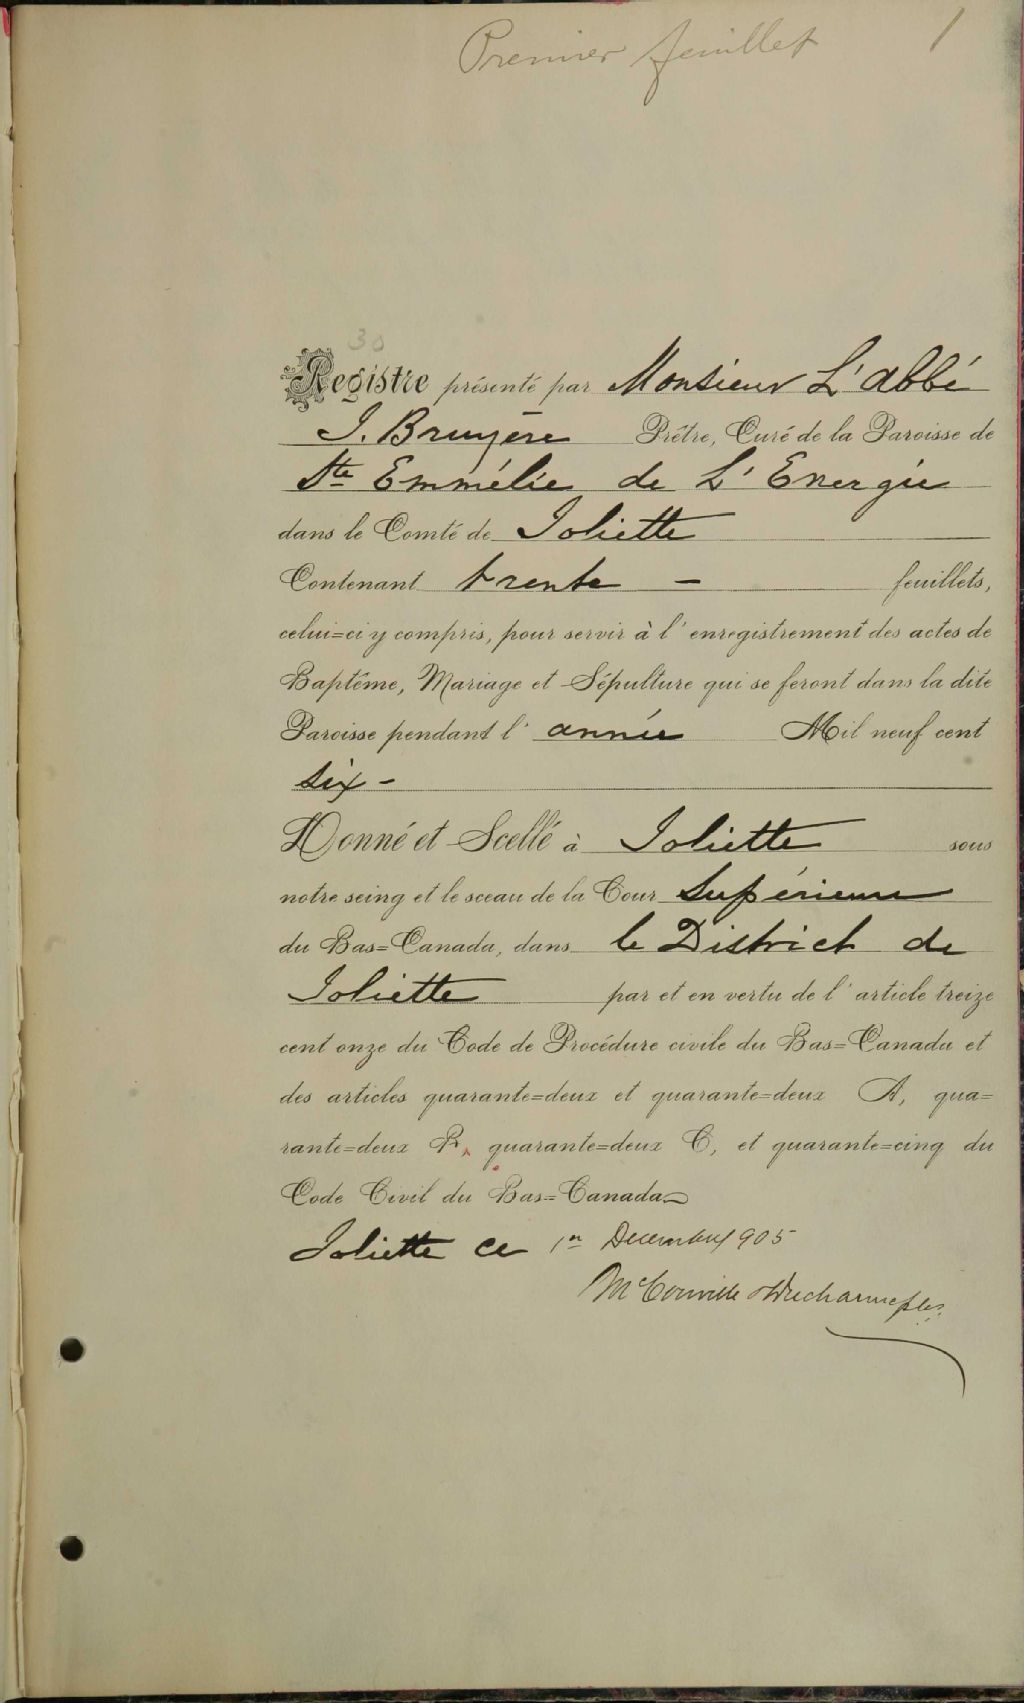 Premier feuillet 1
30
Registre présenté par Monsieur L'abbé
J. Bruyère Prêtre, Curé de la Paroisse de
Ste Emmélie de L'Energie
dans le Comté de Joliette
Contenant trente - feuillets,
celui=ci y compris, pour servir à l'enregistrement des actes de
Baptême, Mariage et Sépulture qui se feront dans la dite
Paroisse pendant l'année Mil neuf cent
six -
Donné et Scellé à Joliette sous
notre seing et le sceau de la Cour Supérieure
du Bas=Canada, dans le District de
Joliette par et en vertu de l'article treize
cent onze du Code de Procédure civile du Bas=Canada et
des articles quarante=deux et quarante=deux A, qua=
rante=deux B, quarante=deux C, et quarante=cinq du
Code Civil du Bas=Canada
Joliette ce 1er Decembre 1905
McConville & Ducharme